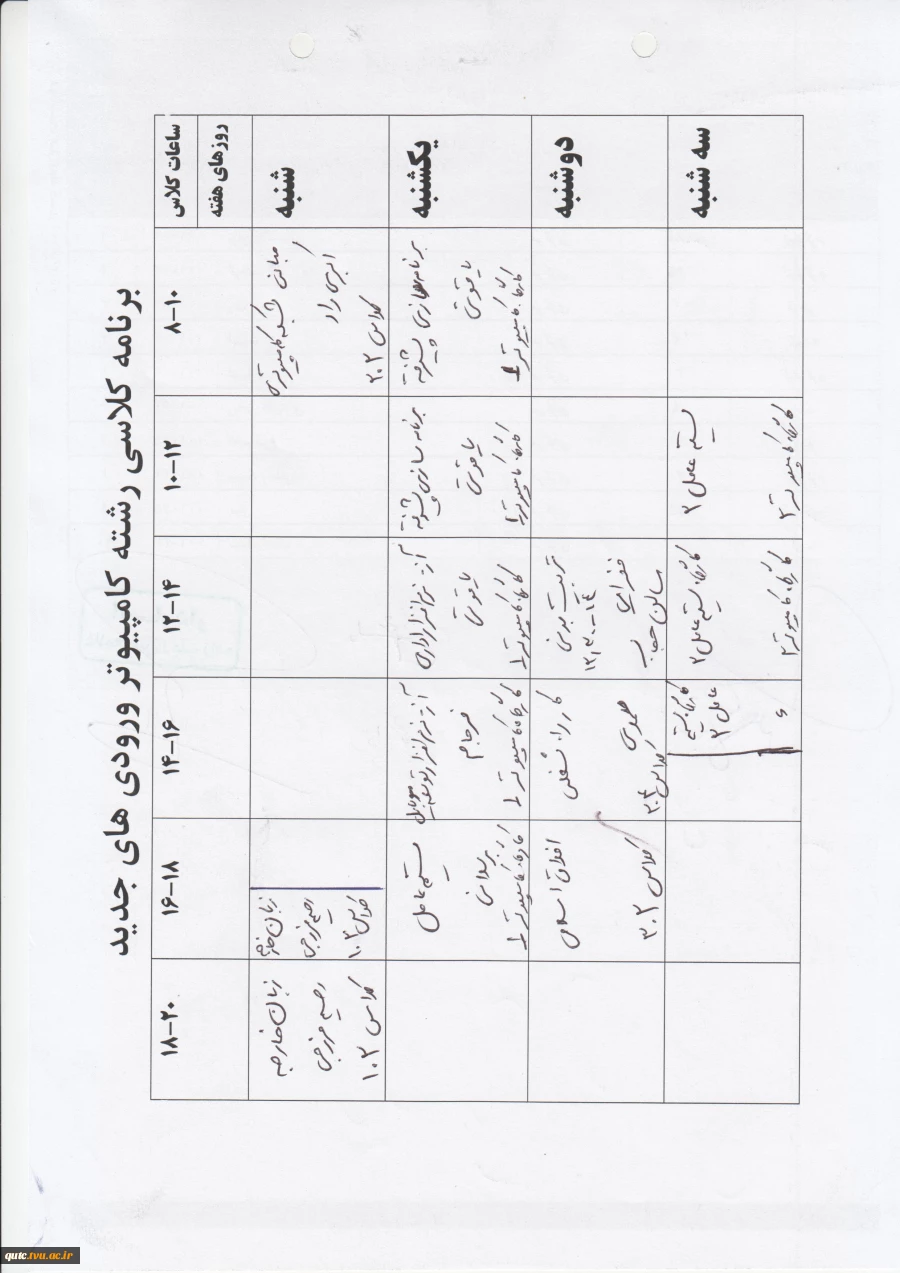 برنامه کلاسی رشته کامپیوتر ورودی های جدید
ساعات کلاس
۸-۱۰
۱۰-۱۲
۱۲-۱۴
۱۴-۱۶
۱۶-۱۸
۱۸-۲۰
روزهای هفته
شنبه
مبانی شبکه کامپیوتری
اکبری راد
کلاس ۲۰۲
زبان خارجه
رحیم فرجی
کلاس ۱۰۲
زبان خارجه
رحیم فرجی
کلاس ۱۰۲
یکشنبه
برنامه سازی پیشرفته
یاقوتی
کارگاه کامپیوتر ۱
برنامه سازی پیشرفته
یاقوتی
کارگاه کامپیوتر ۱
آز. نرم افزار اداری
یاقوتی
کارگاه کامپیوتر ۱
آز. نرم افزار توسعه موبایل
فرجام
کارگاه کامپیوتر ۱
سیستم عامل
کارگاه کامپیوتر ۱
دوشنبه
تربیت بدنی
۱۲,۳۰-۱۴
سالن حجاب
کلاس ۲۰۳
اخلاق اسلامی
کلاس ۳۰۲
سه شنبه
سیستم عامل ۲
کارگاه کامپیوتر ۲
کارگاه سیستم عامل ۲
کارگاه کامپیوتر ۲
کارگاه سیستم
عامل ۲
qutc.tvu.ac.ir